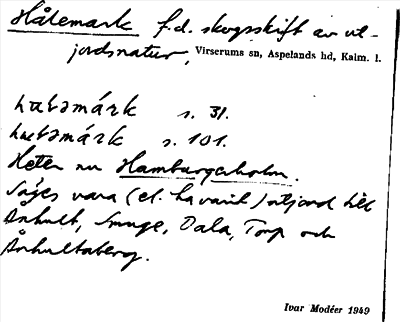 Håtemark f.d. skogsskift av ut-
jordsnatur, Virserums sn, Aspelands hd, Kalm. l.
s. 31.
s. 101.
Heter nu Hamburgerholm.
Säges vara (el. ha varit) utjord till
Anhult, Smuge, Dala, Torp och
Änhultaberg.
Ivar Modéer 1949